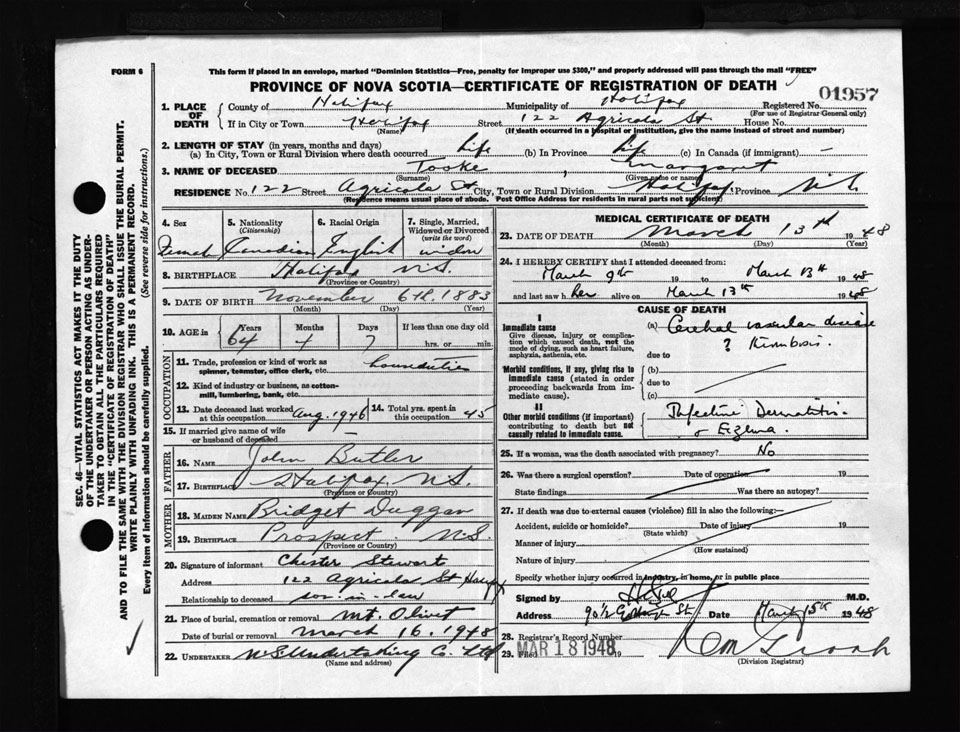 FORM 6
This form if placed in an envelope, marked "Dominion Statistics—Free, penalty for improper use $300," and properly addressed will pass through the mail "FREE"
PROVINCE OF NOVA SCOTIA—CERTIFICATE OF REGISTRATION OF DEATH
01957
1. PLACE OF DEATH
County of Halifax Municipality of Halifax Registered No.
(For use of Registrar-General only)
If in City or Town Halifax Street 122 Agricola St House No.
(Name) (If death occurred in a hospital or institution, give the name instead of street and number)
2. LENGTH OF STAY (in years, months and days)
(a) In City, Town or Rural Division where death occurred Life (b) In Province Life (c) In Canada (if immigrant) —
3. NAME OF DECEASED Margaret
(Surname) (Given name or names)
RESIDENCE No. 122 Street Agricola St City, Town or Rural Division Halifax Province N.S.
(Residence means usual place of abode. Post Office Address for residents in rural parts not sufficient)
4. Sex
Female
5. Nationality
(Citizenship)
Canadian
6. Racial Origin
English
7. Single, Married, Widowed or Divorced
(write the word)
widow
8. BIRTHPLACE Halifax N.S.
(Province or Country)
9. DATE OF BIRTH November 6th. 1883
(Month) (Day) (Year)
10. AGE in
Years Months Days If less than one day old
64 4 7 hrs. or min.
OCCUPATION
11. Trade, profession or kind of work as spinner, teamster, office clerk, etc.
12. Kind of industry or business, as cotton-mill, lumbering, bank, etc.
13. Date deceased last worked at this occupation Aug. 1946
14. Total yrs. spent in this occupation 45
15. If married give name of wife or husband of deceased —
FATHER
16. NAME John Butler
17. BIRTHPLACE Halifax, N.S.
(Province or Country)
MOTHER
18. MAIDEN NAME Bridget Duggan
19. BIRTHPLACE Prospect. N.S.
(Province or Country)
20. Signature of informant Chester Stewart
Address 122 Agricola St
Relationship to deceased son-in-law
21. Place of burial, cremation or removal Mt. Olivet
Date of burial or removal March 16. 1948
22. UNDERTAKER N S Undertaking Co. Ltd
(Name and address)
MEDICAL CERTIFICATE OF DEATH
23. DATE OF DEATH March 13th 1948
(Month) (Day) (Year)
24. I HEREBY CERTIFY that I attended deceased from:
March 9th 19 to March 13th 1948
and last saw her alive on March 13th 1948
CAUSE OF DEATH
I
Immediate cause
Give disease, injury or complication which caused death, not the mode of dying, such as heart failure, asphyxia, asthenia, etc.
(a) Cerebral vascular disease
due to
Morbid conditions, if any, giving rise to immediate cause (stated in order proceeding backwards from immediate cause).
(b)
due to
(c)
II
Other morbid conditions (if important) contributing to death but not causally related to immediate cause.
Infective Dermatitis
or Eczema.
25. If a woman, was the death associated with pregnancy? No
26. Was there a surgical operation? Date of operation 19
State findings Was there an autopsy?
27. If death was due to external causes (violence) fill in also the following:—
Accident, suicide or homicide? Date of injury 19
(State which)
Manner of injury
(How sustained)
Nature of injury
Specify whether injury occurred in industry, in home, or in public place
Signed by M.D.
Address St. Date March 15th 1948
28. Registrar's Record Number
29. Filed MAR 18 1948 19
(Division Registrar)
SEC. 46—VITAL STATISTICS ACT MAKES IT THE DUTY
OF THE UNDERTAKER OR PERSON ACTING AS UNDER-
TAKER TO OBTAIN ALL THE PARTICULARS REQUIRED
IN THE "CERTIFICATE OF REGISTRATION OF DEATH"
AND TO FILE THE SAME WITH THE DIVISION REGISTRAR WHO SHALL ISSUE THE BURIAL PERMIT.
WRITE PLAINLY WITH UNFADING INK. THIS IS A PERMANENT RECORD.
Every item of information should be carefully supplied. (See reverse side for instructions.)